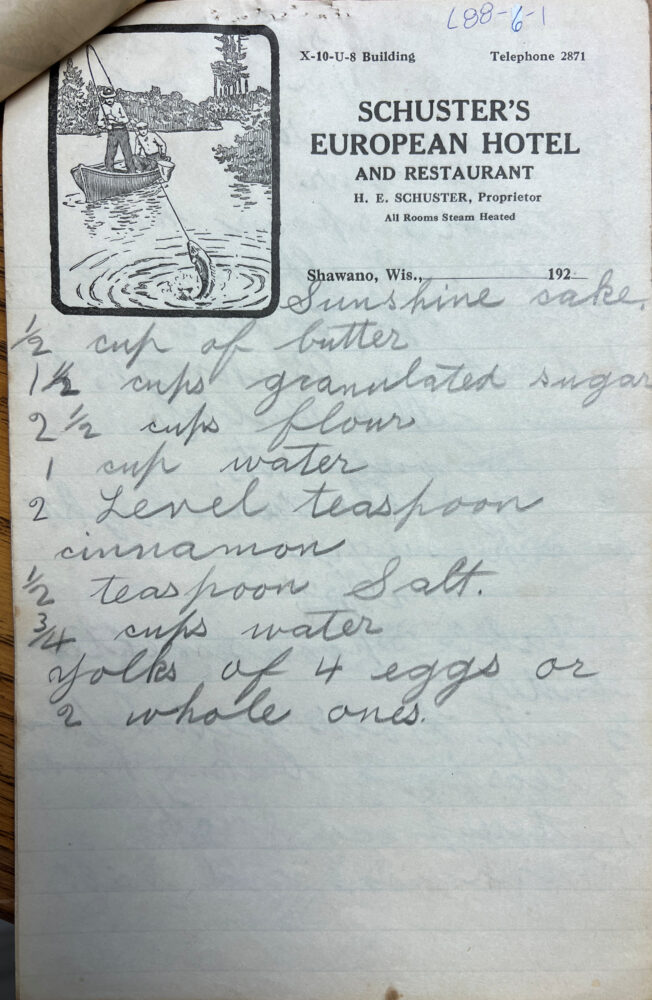 L88-6-1
X-10-U-8 Building Telephone 2871
SCHUSTER'S
EUROPEAN HOTEL
AND RESTAURANT
H. E. SCHUSTER, Proprietor
All Rooms Steam Heated
Shawano, Wis., 192
Sunshine cake.
1/2 cup of butter
1 1/2 cups granulated sugar
2 1/2 cups flour
1 cup water
2 Level teaspoon
cinnamon
1/2 teaspoon Salt.
3/4 cups water
Yolks of 4 eggs or
2 whole ones.